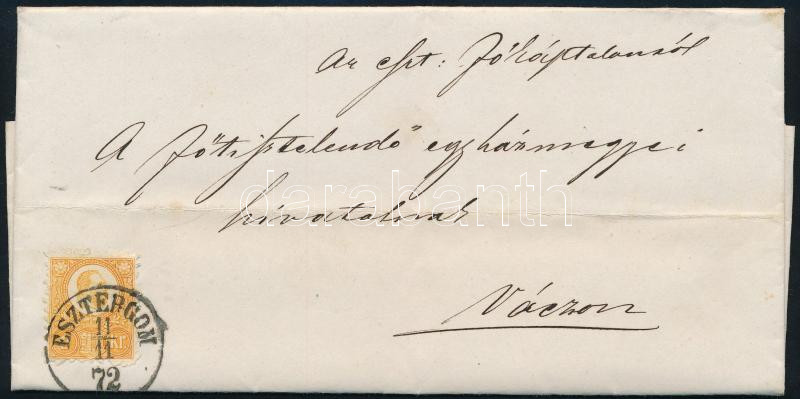 Az eszt: Főkáptalantól
A Főtisztelendő egyházmegyei
hivatalnak
Váczon
darabanth
ESZTERGOM
11
11
72